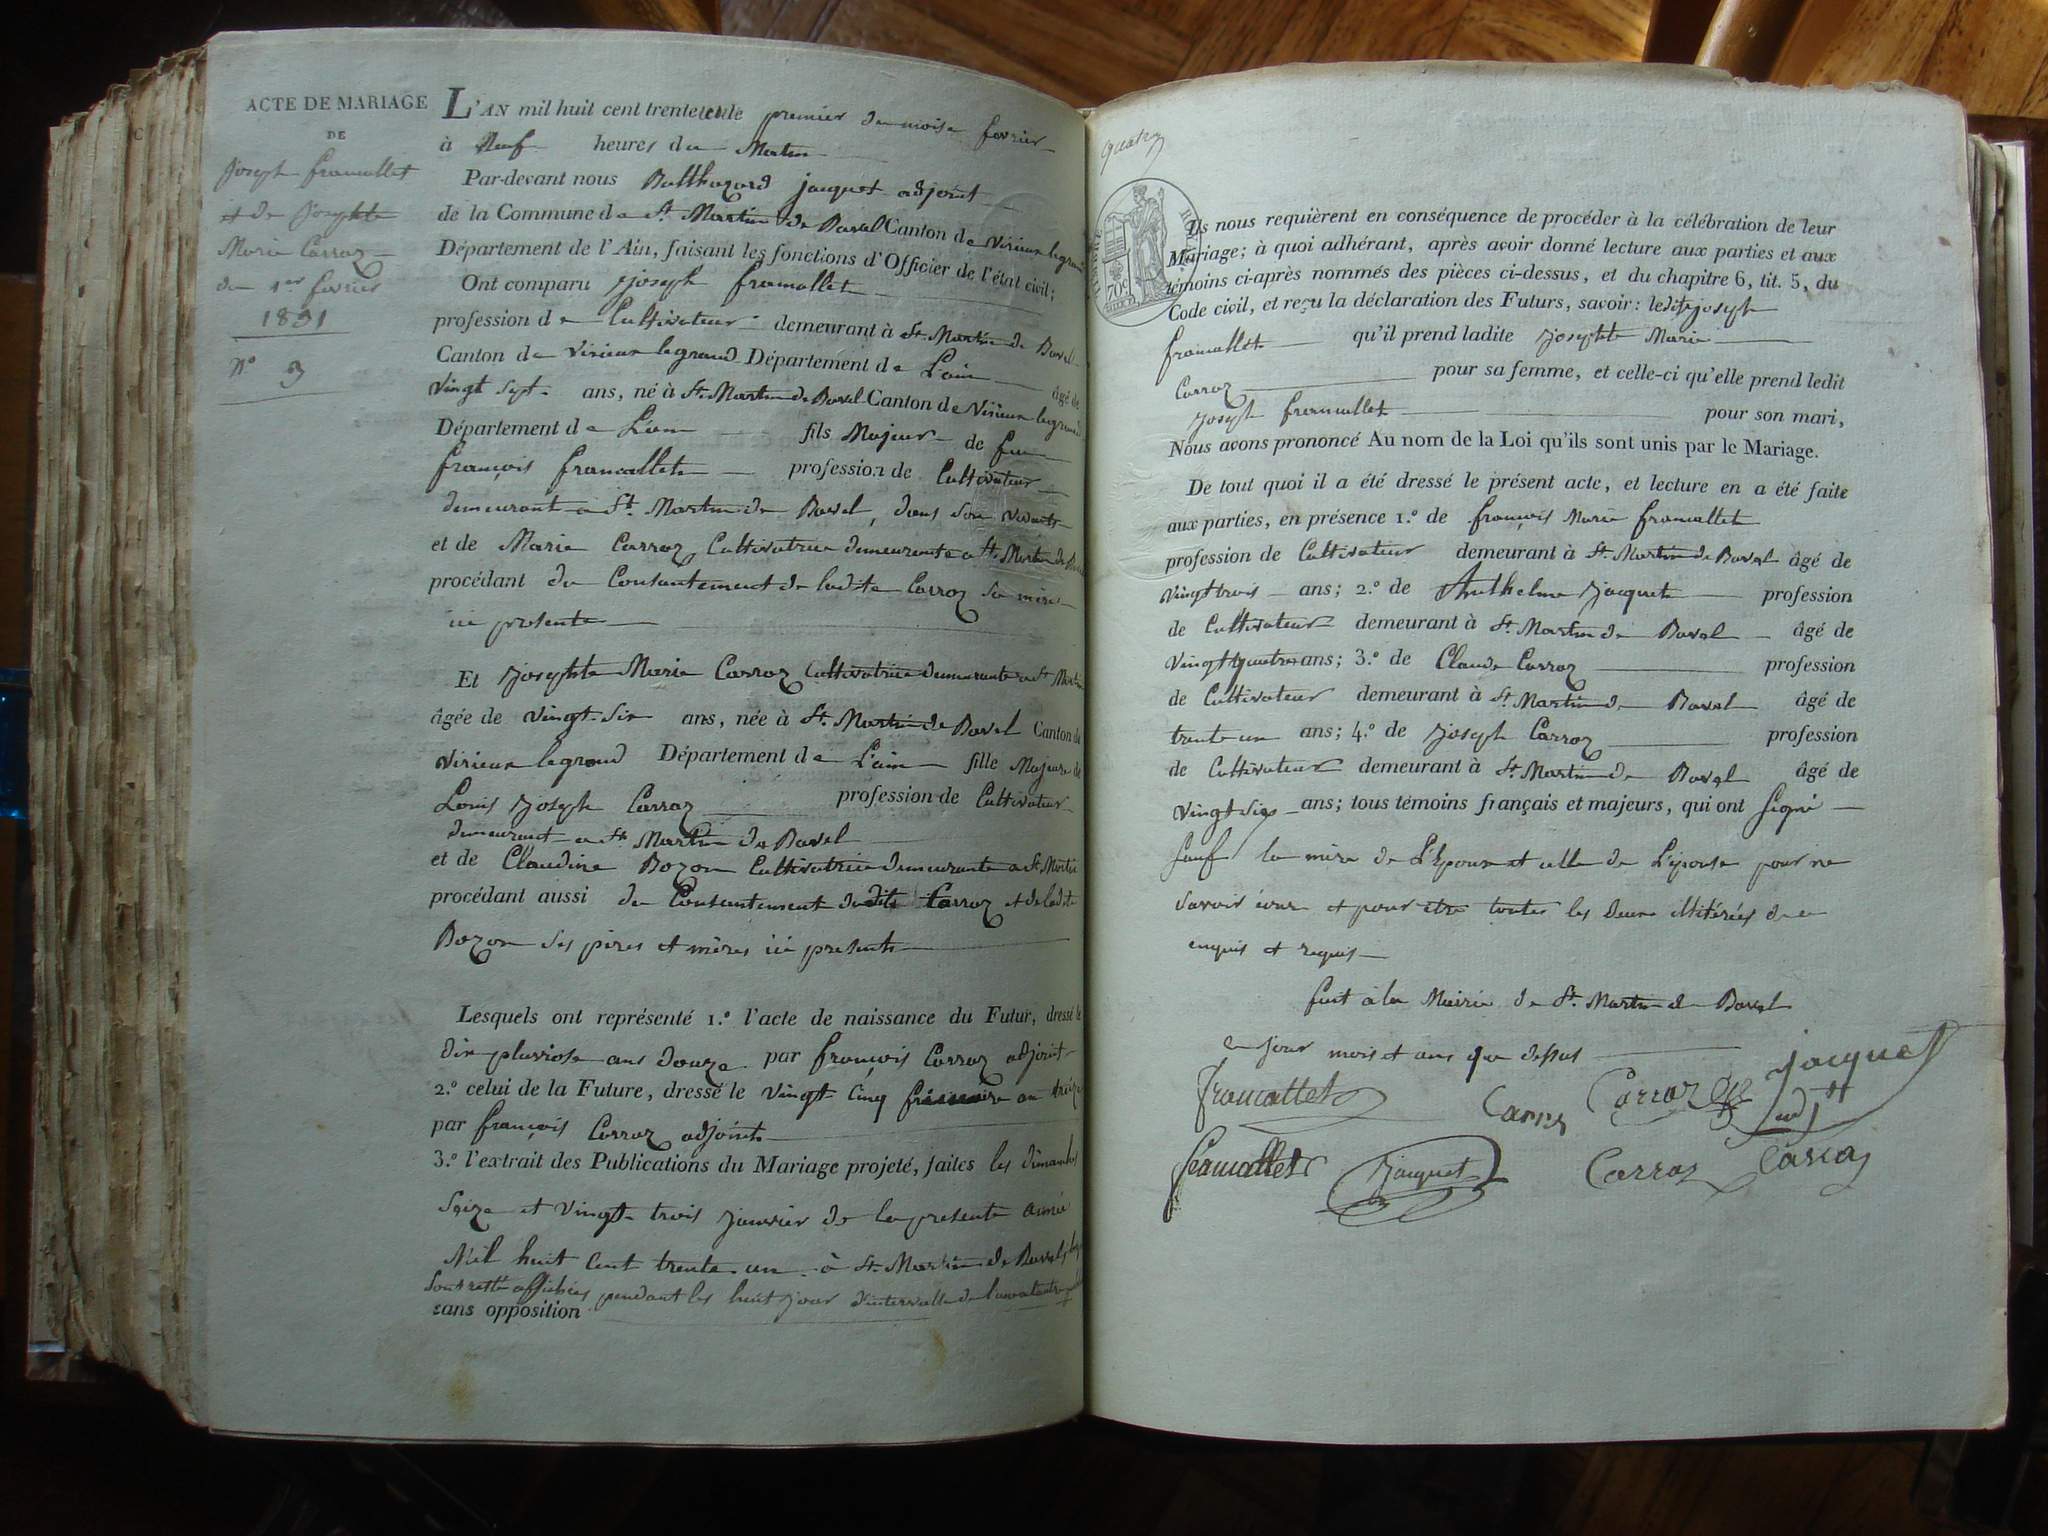 ACTE DE MARIAGE
DE
joseph framallet
et de josephte
Marie Carraz
du 1er fevrier
1831
N° 3
L'AN mil huit cent trente et le premier du mois fevrier
à Neuf heures du Matin
Par-devant nous Balthazard jacquet adjoint
de la Commune de St. Martin de Bavel Canton de Virieux legrand
Département de l'Ain, faisant les fonctions d'Officier de l'état civil;
Ont comparu joseph framallet
profession de Cultivateur demeurant à St. Martin de Bavel
Canton de Virieux legrand Département de L'ain âgé de
Vingt sept ans, né à St. Martin de Bavel Canton de Virieux legrand
Département de L'ain fils Majeur de feu
françois framallet profession de Cultivateur
demeurant a St. Martin de Bavel, dans son vivant
et de Marie Carraz Cultivatrice demeurante a St. Martin de Bavel
procédant du Consantement de ladite Carraz Sa mère
ici presente
Et josephte Marie Carraz Cultivatrice demeurante a St Martin
âgée de vingt-six ans, née à St. Martin de Bavel Canton de
Virieux legrand Département de L'ain fille Majeure de
Louis joseph Carraz profession de Cultivateur
demeurant a St. Martin de Bavel
et de Claudine Bozon Cultivatrice demeurante a St. Martin
procédant aussi du Consantement dudits Carraz et de ladite
Bozon Ses pères et mères ici presents
Lesquels ont représenté 1.° l'acte de naissance du Futur, dressé le
dix pluviose ans douze par françois Carraz adjoint
2.° celui de la Future, dressé le vingt cinq frimaire an treize
par françois Carraz adjoint
3.° l'extrait des Publications du Mariage projeté, faites les dimanches
Seize et Vingt-trois janvier de la presente année
Mil huit Cent trente un à St. Martin de Bavel,
Sont resté affichées pendant les huit jour d'intervalle de l'une a l'autre
sans opposition
quatre
TIMBRE
70c
Ils nous requièrent en conséquence de procéder à la célébration de leur
Mariage; à quoi adhérant, après avoir donné lecture aux parties et aux
témoins ci-après nommés des pièces ci-dessus, et du chapitre 6, tit. 5, du
Code civil, et reçu la déclaration des Futurs, savoir: ledit joseph
framallet qu'il prend ladite josephte Marie
Carraz pour sa femme, et celle-ci qu'elle prend ledit
joseph framallet pour son mari,
Nous avons prononcé Au nom de la Loi qu'ils sont unis par le Mariage.
De tout quoi il a été dressé le présent acte, et lecture en a été faite
aux parties, en présence 1.° de françois Marie framallet
profession de Cultivateur demeurant à St. Martin de Bavel âgé de
Vingt trois ans; 2.° de Anthelme jacquet profession
de Cultivateur demeurant à St. Martin de Bavel âgé de
Vingt quatre ans; 3.° de Claude Carraz profession
de Cultivateur demeurant à St. Martin de Bavel âgé de
trente un ans; 4.° de joseph Carraz profession
de Cultivateur demeurant à St. Martin de Bavel âgé de
Vingt Six ans; tous témoins français et majeurs, qui ont Signé
Sauf la mère de L'Epoux et celle de L'épouse pour ne
Savoir écrire et pour être toutes les deux illitérées de ce
enquis et requis
fait à la Mairie de St. Martin de Bavel
ce jour mois et ans que dessus
framallet Carraz Carraz jacquet
adjt
framallet jacquet Carraz Carraz